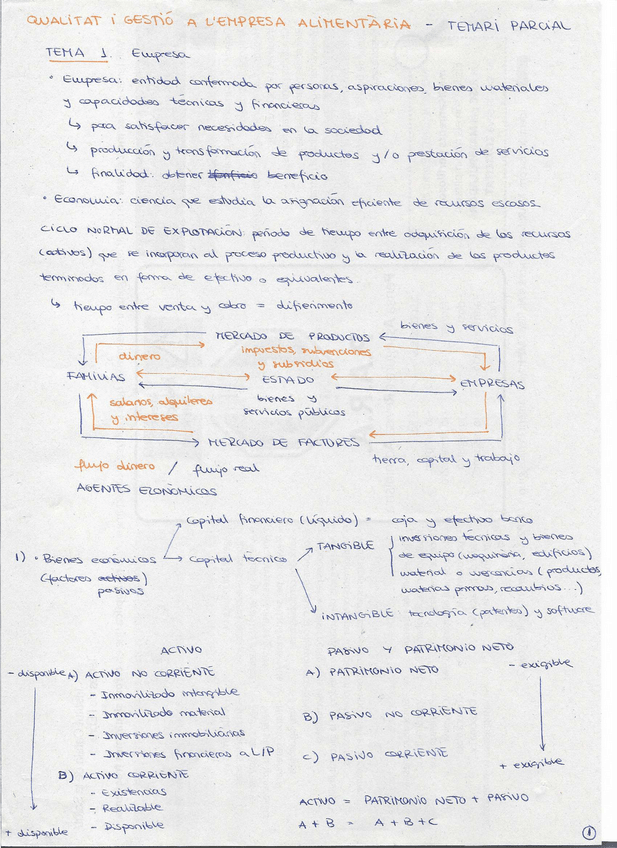 QUALITAT i GESTIÓ A L'EMPRESA ALIMENTÀRIA - TEMARI PARCIAL
TEMA 1. Empresa
• Empresa: entidad conformada por personas, aspiraciones, bienes materiales
y capacidades técnicas y financieras
↳ para satisfacer necesidades en la sociedad
↳ producción y transformación de productos y/o prestación de servicios
↳ finalidad: obtener beneficio
• Economía: ciencia que estudia la asignación eficiente de recursos escasos.
CICLO NORMAL DE EXPLOTACIÓN: período de tiempo entre adquisición de los recursos
(activos) que se incorporan al proceso productivo y la realización de los productos
terminados en forma de efectivo o equivalentes.
↳ tiempo entre venta y cobro = diferimento
MERCADO DE PRODUCTOS
bienes y servicios
dinero
impuestos, subvenciones
y subsidios
FAMILIAS
ESTADO
EMPRESAS
salarios, alquileres
y intereses
bienes y
servicios públicos
MERCADO DE FACTORES
tierra, capital y trabajo
flujo dinero / flujo real
AGENTES ECONÓMICOS
1) • Bienes económicos
(factores activos)
pasivos
Capital financiero (líquido) = caja y efectivo banco
Capital técnico
TANGIBLE
inversiones técnicas y bienes
de equipo (maquinaria, edificios)
material o mercancías (productos,
materias primas, recambios...)
INTANGIBLE tecnología (patentes) y software
ACTIVO
PASIVO Y PATRIMONIO NETO
- disponible
A) ACTIVO NO CORRIENTE
- Inmovilizado intangible
- Inmovilizado material
- Inversiones immobiliarias
- Inversiones financieras a L/P
B) ACTIVO CORRIENTE
- Existencias
- Realizable
- Disponible
+ disponible
A) PATRIMONIO NETO
- exigible
B) PASIVO NO CORRIENTE
C) PASIVO CORRIENTE
+ exigible
ACTIVO = PATRIMONIO NETO + PASIVO
A + B = A + B + C
1